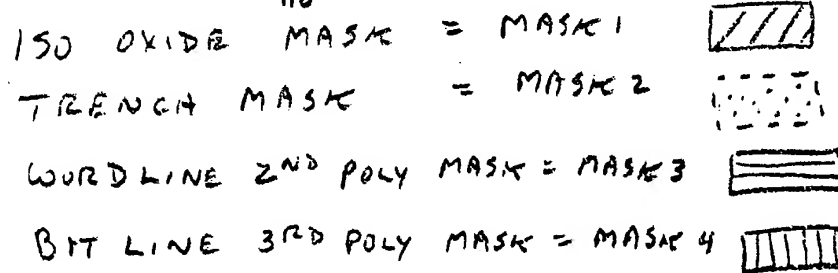 ISO OXIDE MASK = MASK 1
TRENCH MASK = MASK 2
WORD LINE 2ND POLY MASK = MASK 3
BIT LINE 3RD POLY MASK = MASK 4